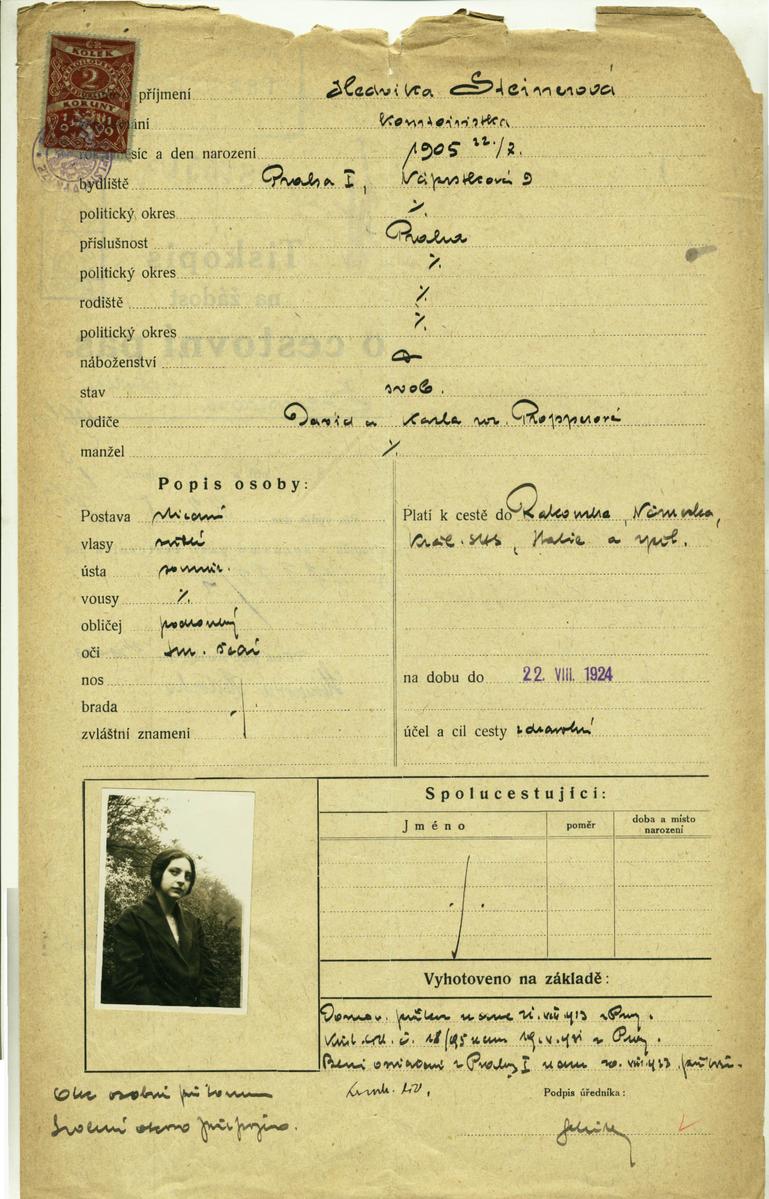 ČS
KOLEK
2
KORUNY
1919
příjmení Hedvika Steinerová
ání kontoristka
měsíc a den narození 1905 22./7.
bydliště Praha I, Náprstkova 9
politický okres ⁒
příslušnost Praha
politický okres ⁒
rodiště ⁒
politický okres ⁒
náboženství
stav svob.
rodiče David a Karla roz. Propperová
manžel ⁒
Popis osoby:
Postava střední
vlasy
ústa souměr.
vousy ⁒
obličej podlouhlý
oči tm. šedé
nos
brada
zvláštní znamení
Platí k cestě do Rakouska, Německa,
Král. SHS, Italie a zpět.
na dobu do 22. VIII. 1924
účel a cíl cesty zdravotní
Spolucestující:
Jméno
poměr
doba a místo
narození
Vyhotoveno na základě:
Domov. průkaz 913 z Prahy.
č. 18/95 z Prahy.
z Prahy I 20. 1923
Otec osobně přítomen
Podpis úředníka:
Tiskopis
na žádost
o cestovní